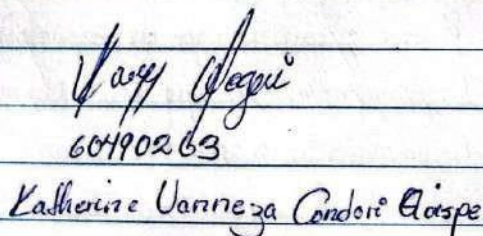 60490263
Katherine Vanneza Condori Qoispe